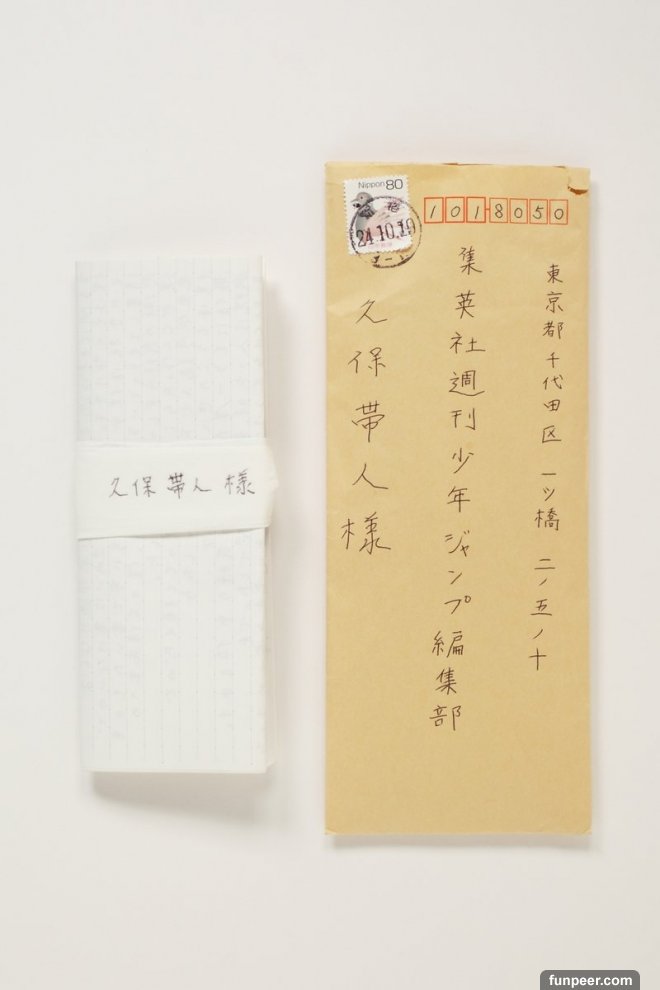 久保帯人様
Nippon 80
24.10.10
101-8050
東京都千代田区一ツ橋二ノ五ノ十
集英社週刊少年ジャンプ編集部
久保帯人様
funpeer.com